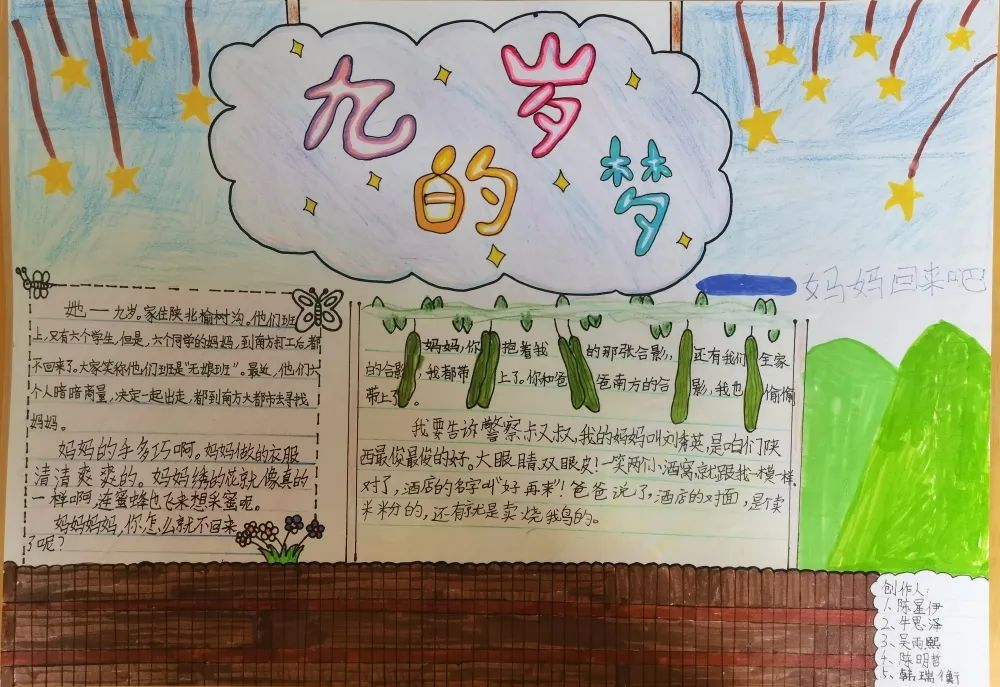 九岁的梦
妈妈回来吧!
她一九岁。家住陕北榆树沟。他们班
上,又有六个学生,但是,六个同学的妈妈,到南方打工后,都
不回来了。大家笑称他们班是“无娘班”。最近,他们六
个人暗暗商量,决定一起出走,都到南方大都市去寻找
妈妈。
妈妈的手多巧啊。妈妈做的衣服
清清爽爽的。妈妈绣的花就像真的
一样啊,连蜜蜂也飞来想采蜜呢。
妈妈妈妈,你怎么就不回来
了呢?
妈妈,你抱着我的那张合影,还有我们全家
的合影,我都带上了。你和爸爸南方的合影,我也偷偷
带上了。
我要告诉警察叔叔,我的妈妈叫刘秀英,是咱们陕
西最俊最俊的好。大眼睛双眼皮!一笑两个小酒窝就跟我一模一样。
对了,酒店的名字叫“好再来”!爸爸说了,酒店的对面,是卖
米粉的,还有就是卖烧鹅的。
创作人:
1、陈星伊
2、牛思泽
3、吴雨熙
4、陈明哲
5、韩瑞衡